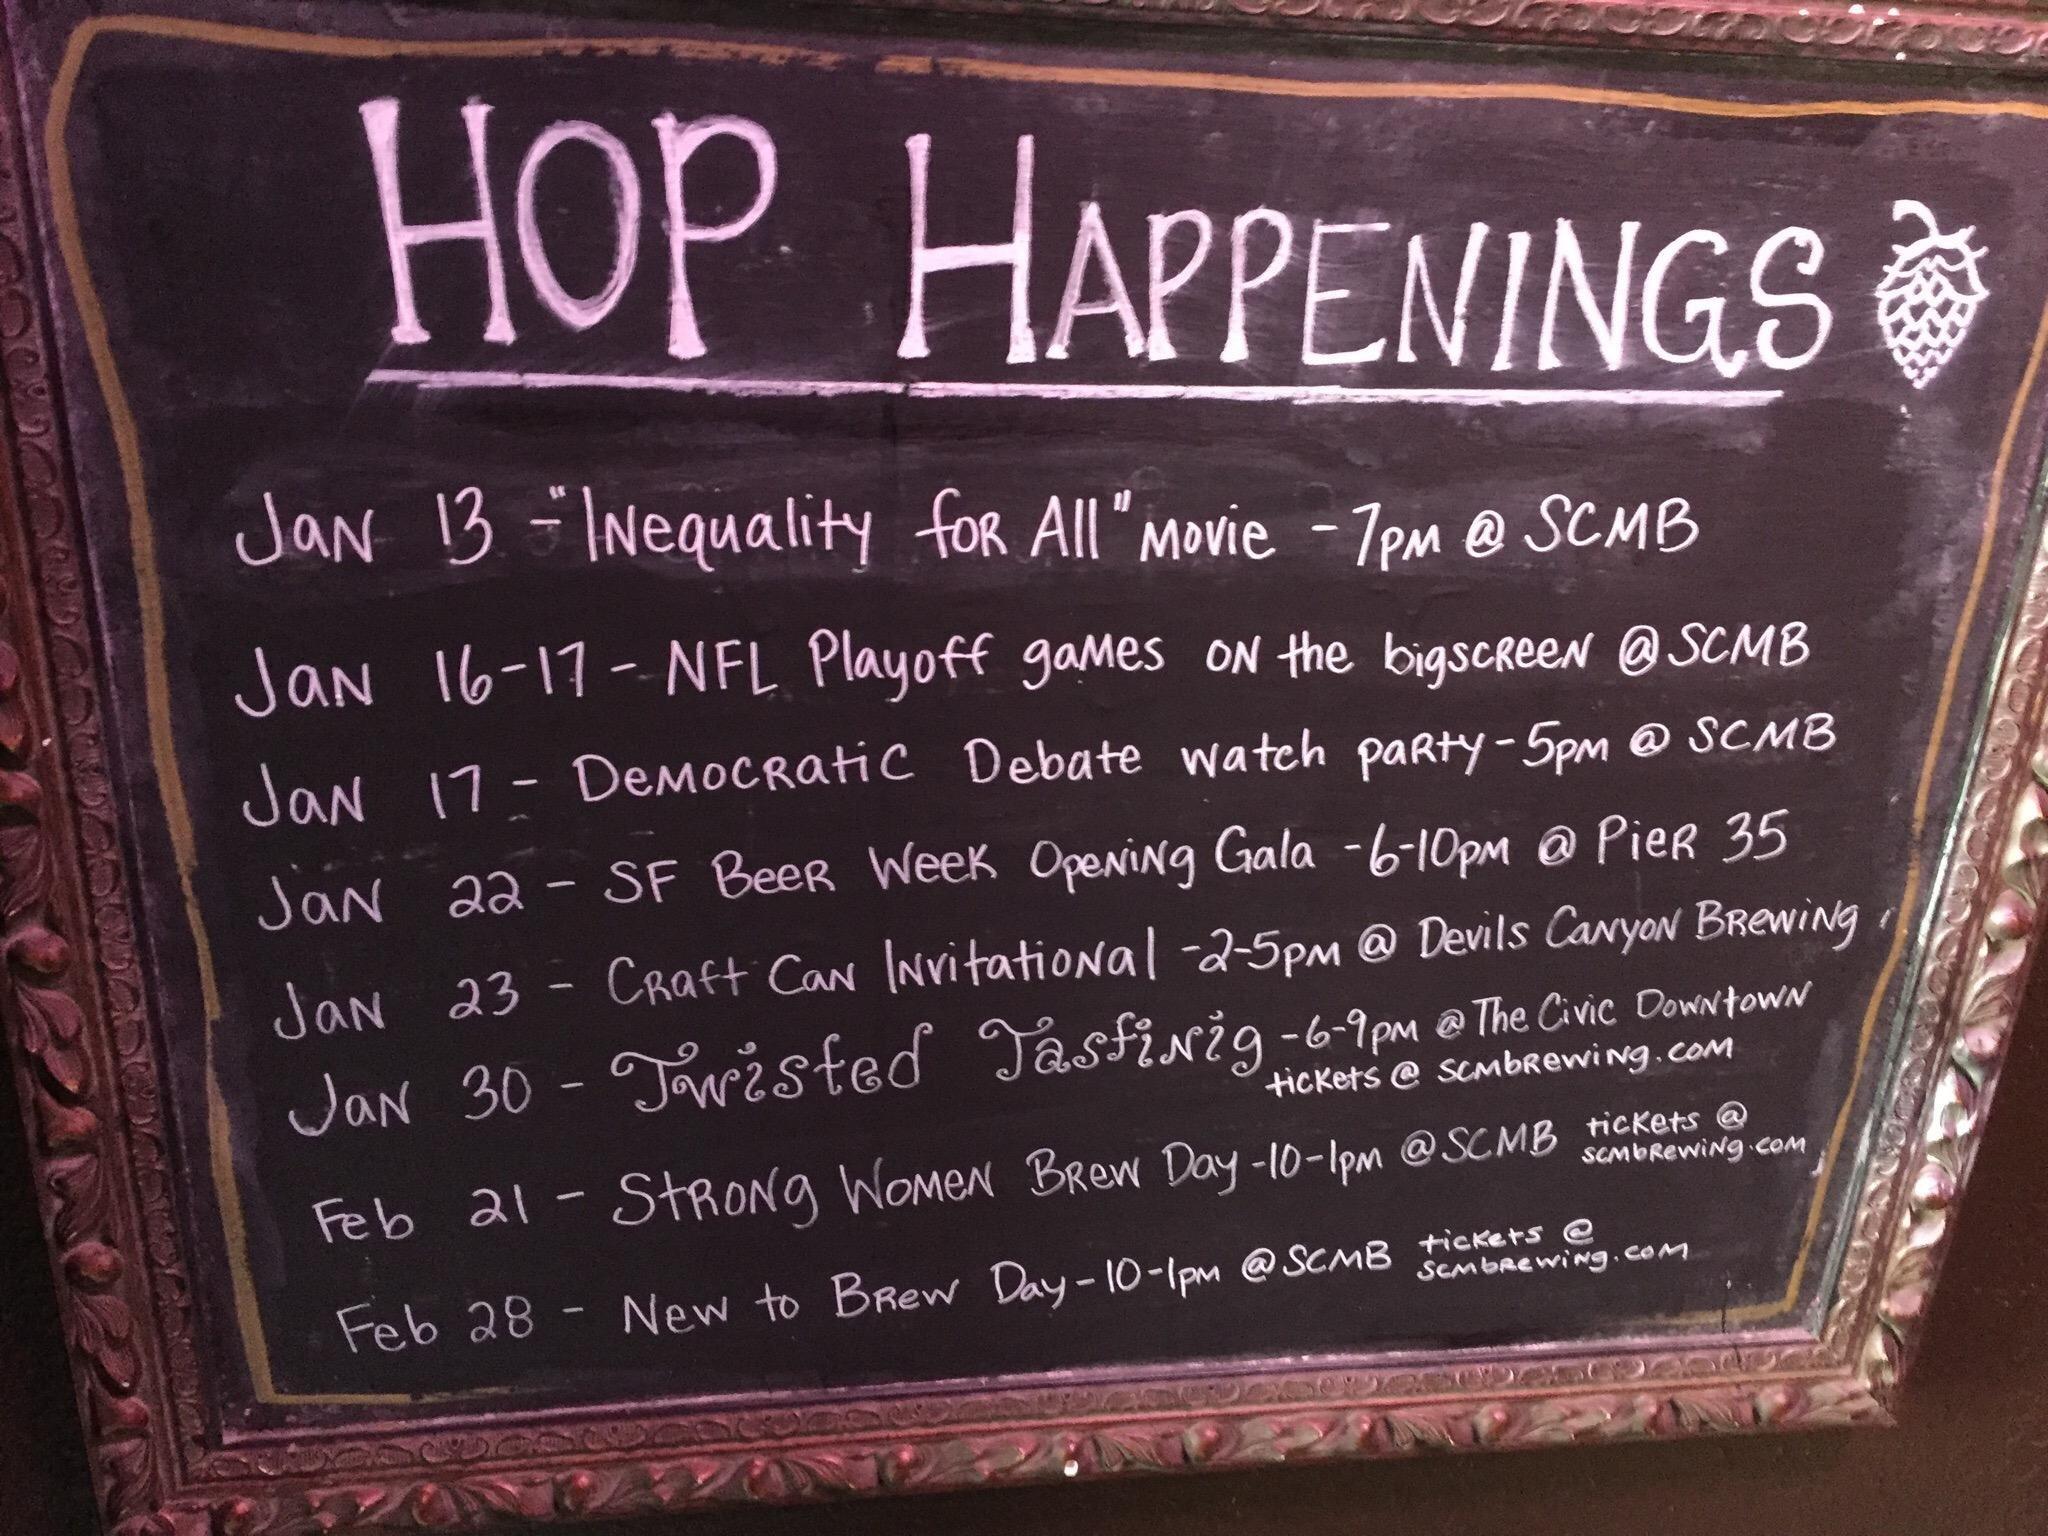 HOP HAPPENINGS
Jan 13 - "Inequality for All" movie - 7pm @ SCMB
Jan 16-17 - NFL Playoff games on the bigscreen @ SCMB
Jan 17 - Democratic Debate watch party - 5pm @ SCMB
Jan 22 - SF Beer Week Opening Gala - 6-10pm @ Pier 35
Jan 23 - Craft Can Invitational - 2-5pm @ Devils Canyon Brewing
Jan 30 - Twisted Tasting - 6-9pm @ The Civic Downtown
tickets @ scmbrewing.com
Feb 21 - Strong Women Brew Day - 10-1pm @ SCMB tickets @
scmbrewing.com
Feb 28 - New to Brew Day - 10-1pm @ SCMB tickets @
scmbrewing.com